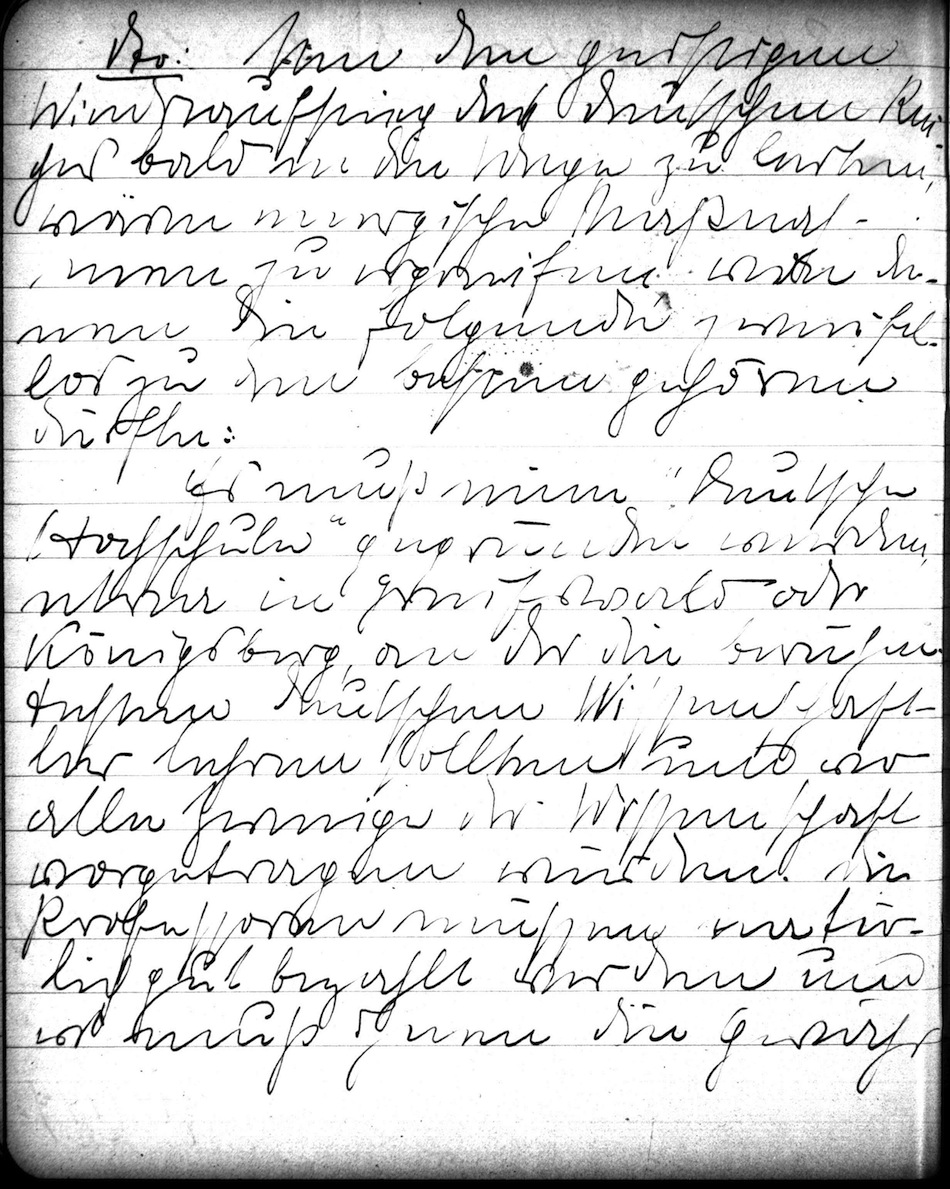 Um den geistigen
Wiederaufstieg des deutschen Rei-
ches bald in die Wege zu leiten,
wären energische Maßnah-
men zu ergreifen unter de-
nen die folgende zweifel-
los zu den besten gehören
dürfte:
Es muß eine "Deutsche
Hochschule" gegründet werden,
etwa in Greifswald oder
Königsberg, an der die berühm-
testen deutschen Wissenschaft-
ler lehren sollten und wo
alle Zweige der Wissenschaft
vorgetragen würden. Die
Professoren müssen natür-
lich gut bezahlt werden und
es muß ihnen die Gewähr